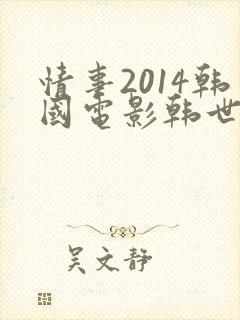 情事2014韩
國电影韩世
吴文静